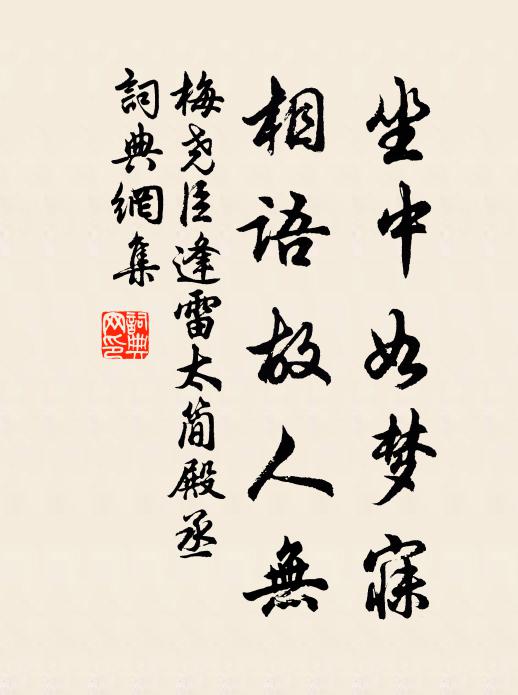 坐中如梦寐
相语故人無
梅尧臣逢雷太简殿丞
词典網集
詞典
网印